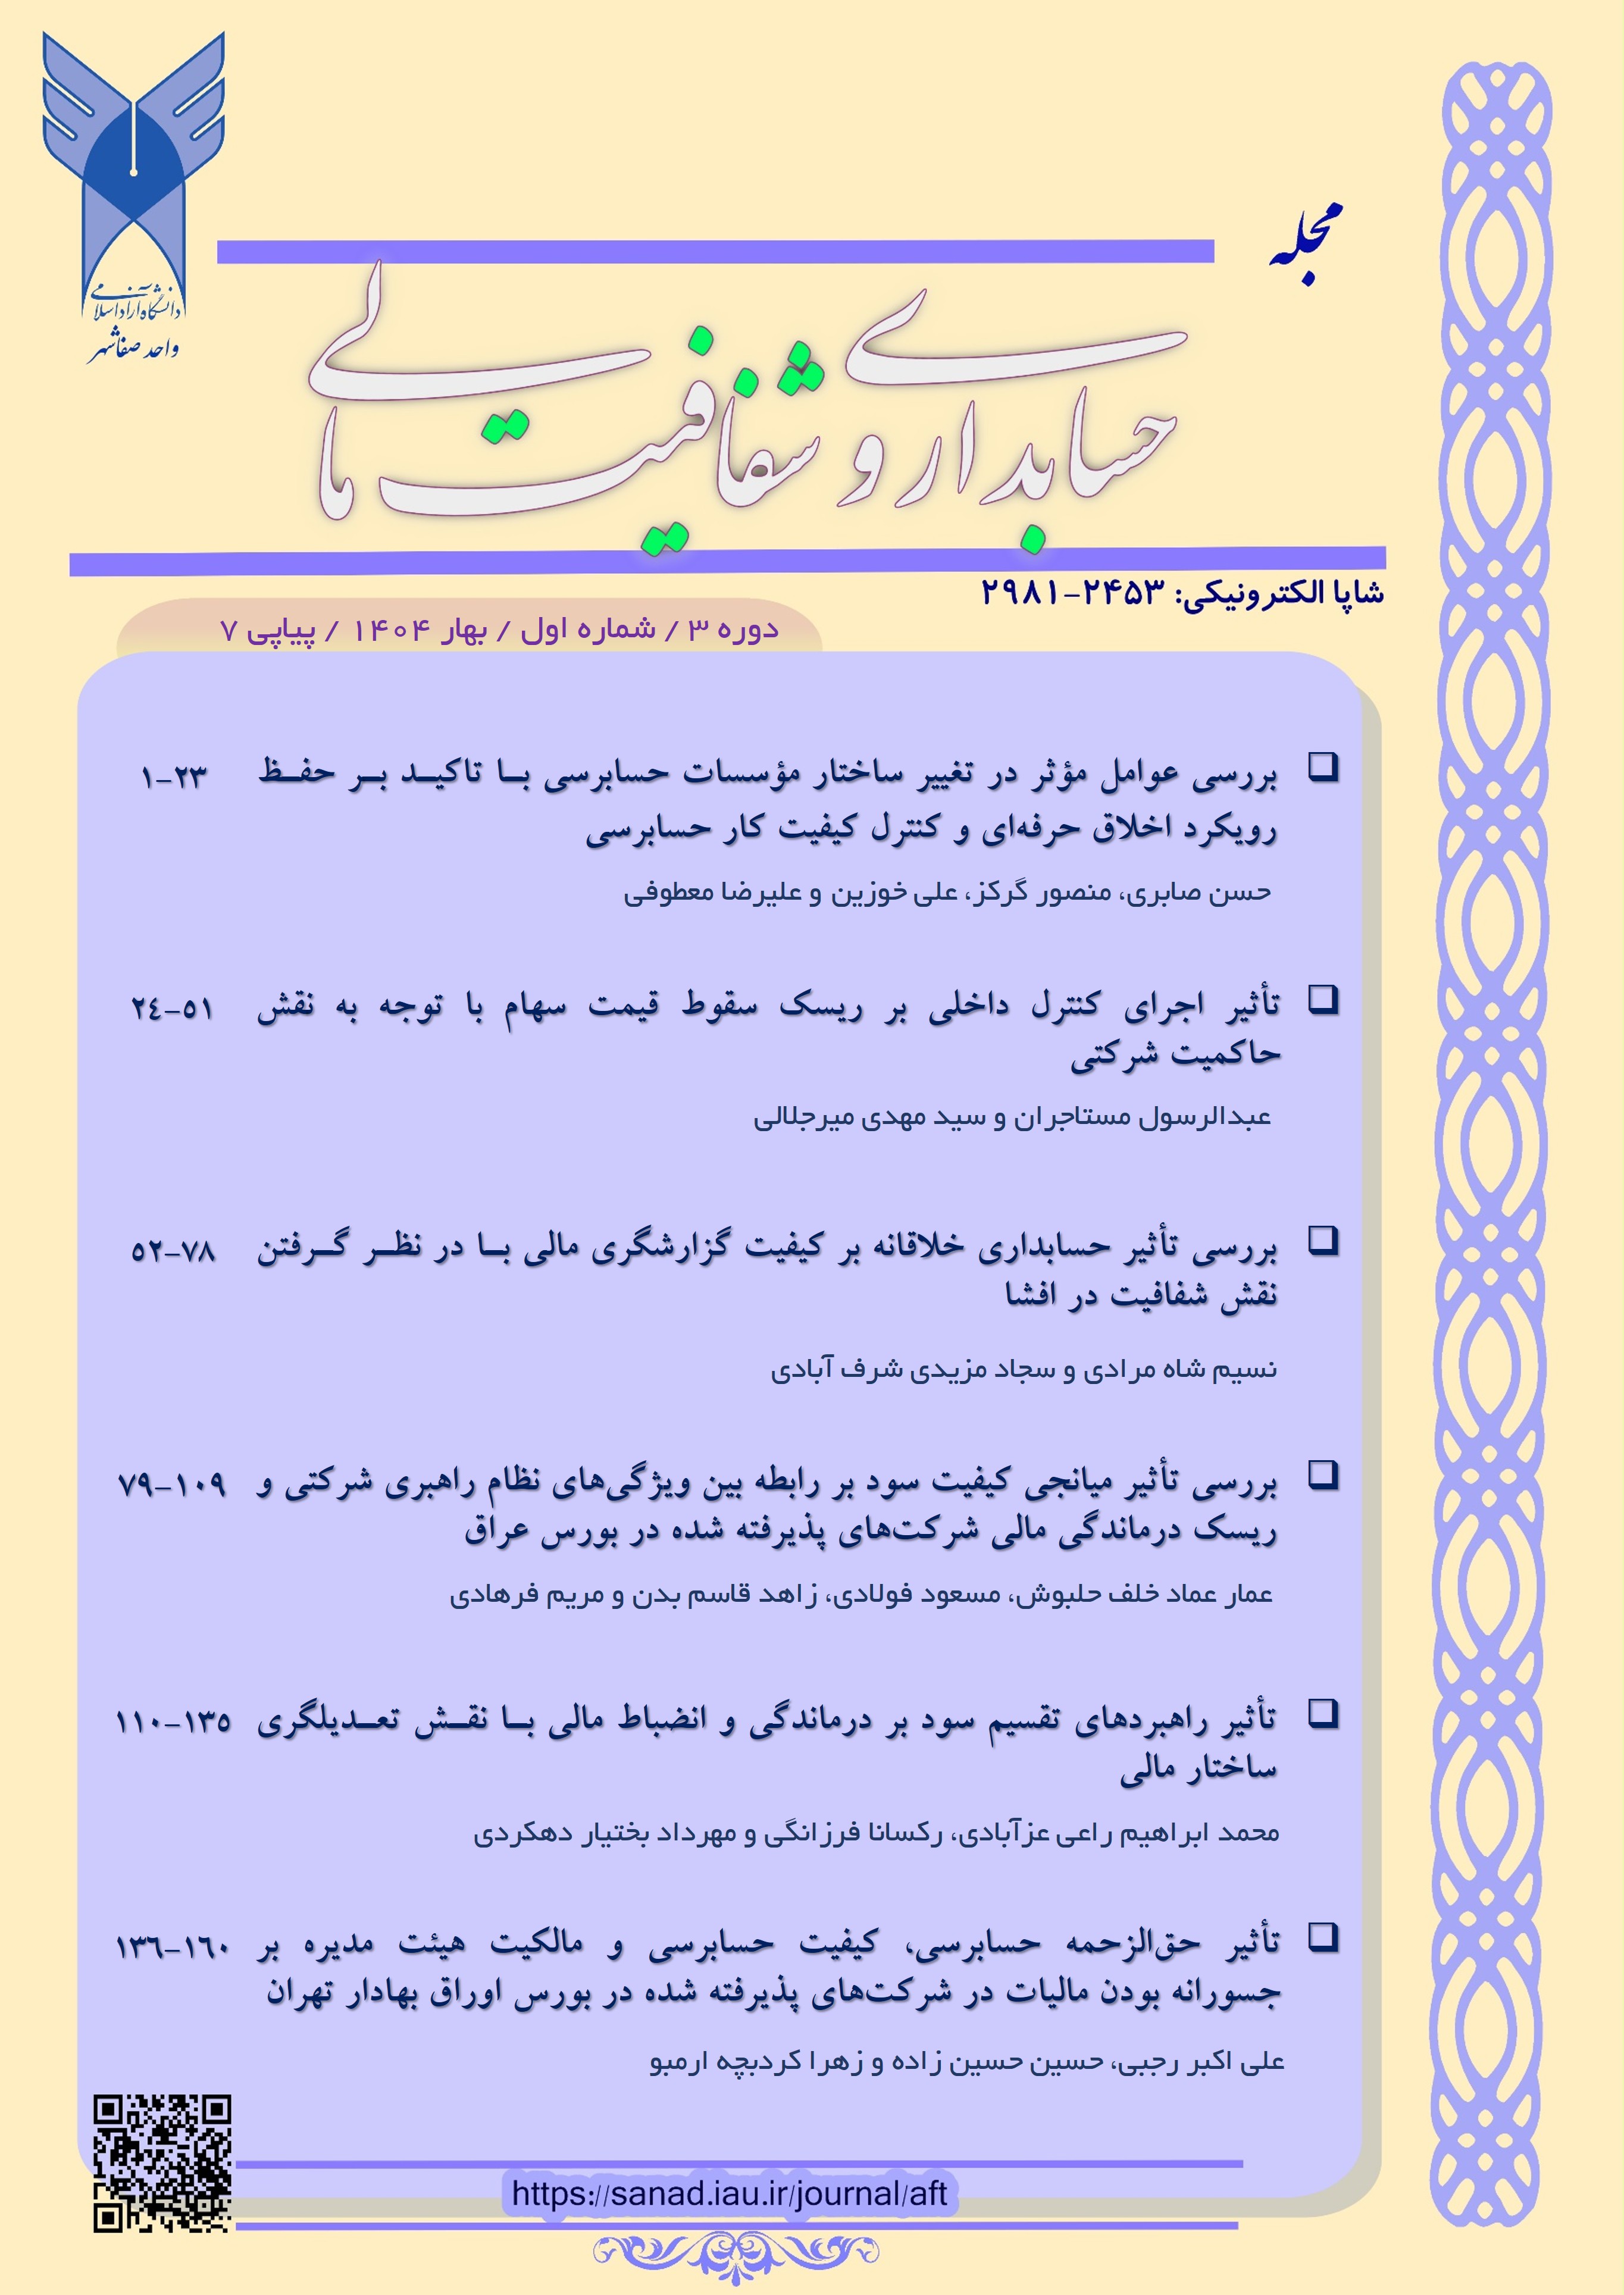 دانشگاه آزاد اسلامی
واحد صفاشهر
مجله
حسابداری و شفافیت مالی
شاپا الکترونیکی: ۲۴۵۳-۲۹۸۱
دوره ۳ / شماره اول / بهار ۱۴۰۴ / پیاپی ۷
بررسی عوامل مؤثر در تغییر ساختار مؤسسات حسابرسی بـا تاکیـد بـر حفـظ ۱-۲۳
رویکرد اخلاق حرفه‌ای و کنترل کیفیت کار حسابرسی
حسن صابری، منصور گرکز، علی خوزین و علیرضا معطوفی
تأثیر اجرای کنترل داخلی بر ریسک سقوط قیمت سهام با توجه به نقش ٢٤-٥١
حاکمیت شرکتی
عبدالرسول مستاجران و سید مهدی میرجلالی
بررسی تأثیر حسابداری خلاقانه بر کیفیت گزارشگری مالی بـا در نظـر گـرفتن ٥٢-٧٨
نقش شفافیت در افشا
نسیم شاه مرادی و سجاد مزیدی شرف آبادی
بررسی تأثیر میانجی کیفیت سود بر رابطه بین ویژگی‌های نظام راهبری شرکتی و ٧٩-١٠٩
ریسک درماندگی مالی شرکت‌های پذیرفته شده در بورس عراق
عمار عماد خلف حلبوش، مسعود فولادی، زاهد قاسم بدن و مریم فرهادی
تأثیر راهبردهای تقسیم سود بر درماندگی و انضباط مالی بـا نقـش تعـدیلگری ١١٠-١٣٥
ساختار مالی
محمد ابراهیم راعی عزآبادی، رکسانا فرزانگی و مهرداد بختیار دهکردی
تأثیر حق‌الزحمه حسابرسی، کیفیت حسابرسی و مالکیت هیئت مدیره بر ١٣٦-١٦٠
جسورانه بودن مالیات در شرکت‌های پذیرفته شده در بورس اوراق بهادار تهران
علی اکبر رجبی، حسین حسین زاده و زهرا کردبچه ارمبو
https://sanad.iau.ir/journal/aft